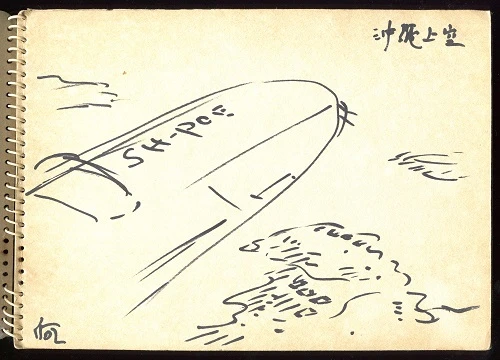 沖縄上空
SH-POE